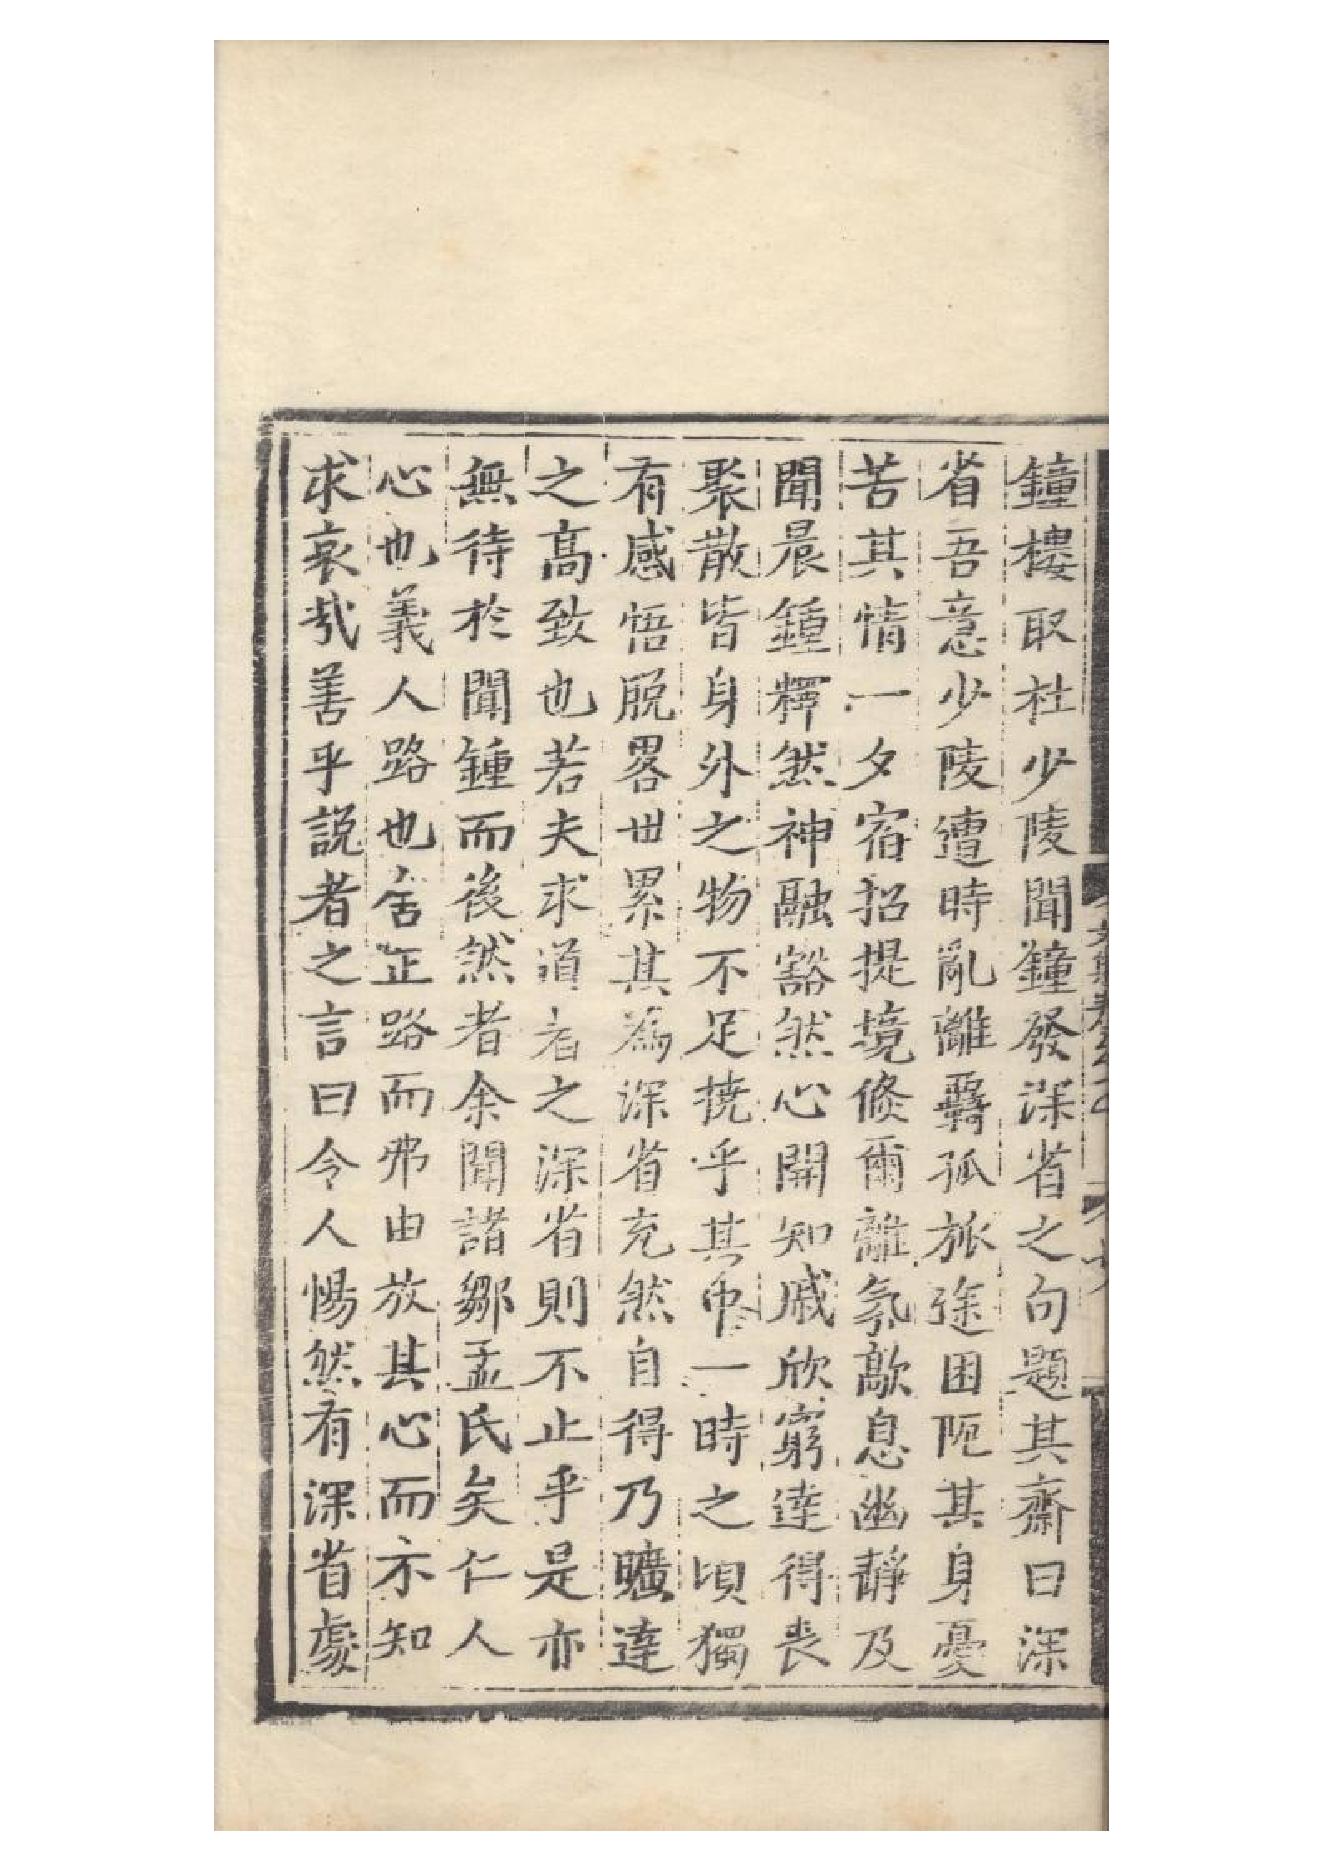 鐘樓取杜少陵聞鐘發深省之句題其齋曰深
省吾意少陵遭時亂離羇孤旅途困阨其身憂
苦其情一夕宿招提境倐爾離氛歊息幽靜及
聞晨鍾釋然神融豁然心開知戚欣窮達得喪
聚散皆身外之物不足撓乎其中一時之頃獨
有感悟脫畧世累其為深省充然自得乃曠達
之高致也若夫求道者之深省則不止乎是亦
無待於聞鍾而後然者余聞諸鄒孟氏矣仁人
心也義人路也舍正路而弗由放其心而不知
求哀哉善乎說者之言曰令人惕然有深省處